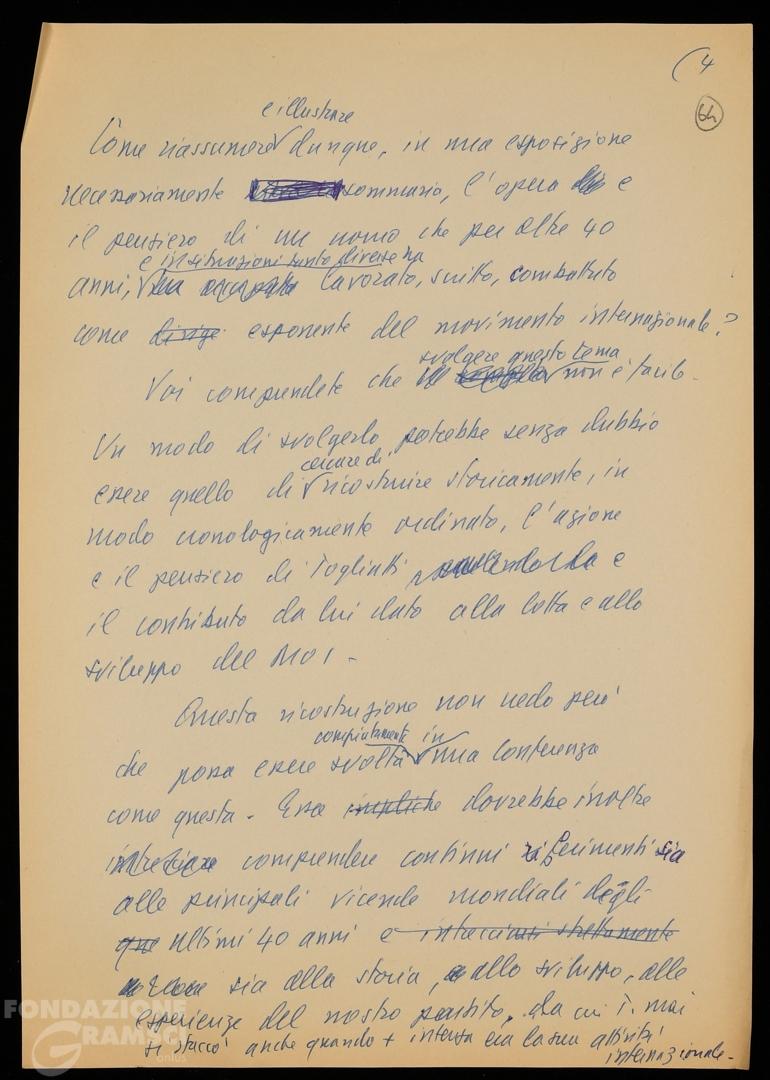 (4
64
e illustrare
Come riassumere dunque, in una esposizione
necessariamente sommaria, l'opera e
il pensiero di un uomo che per oltre 40
e in situazioni tanto diverse ha
anni, lavorato, scritto, combattuto
come dirige esponente del movimento internazionale?
svolgere questo tema
Voi comprendete che non è facile.
Un modo di svolgerlo potrebbe senza dubbio
cercare di
essere quello di ricostruire storicamente, in
modo cronologicamente ordinato, l'azione
e il pensiero di Togliatti e
il contributo da lui dato alla lotta e allo
sviluppo del MOI -
Questa ricostruzione non vedo però
compiutamente in
che possa essere svolta una conferenza
come questa - Essa impliche dovrebbe inoltre
intrecciare comprendere continui riferimenti sia
alle principali vicende mondiali degli
que ultimi 40 anni e intrecciati strettamente
sia alla storia, allo sviluppo, alle
esperienze del nostro partito, da cui T. mai
si staccò anche quando + intensa era la sua attività
internazionale -
FONDAZIONE
GRAMSCI
onlus